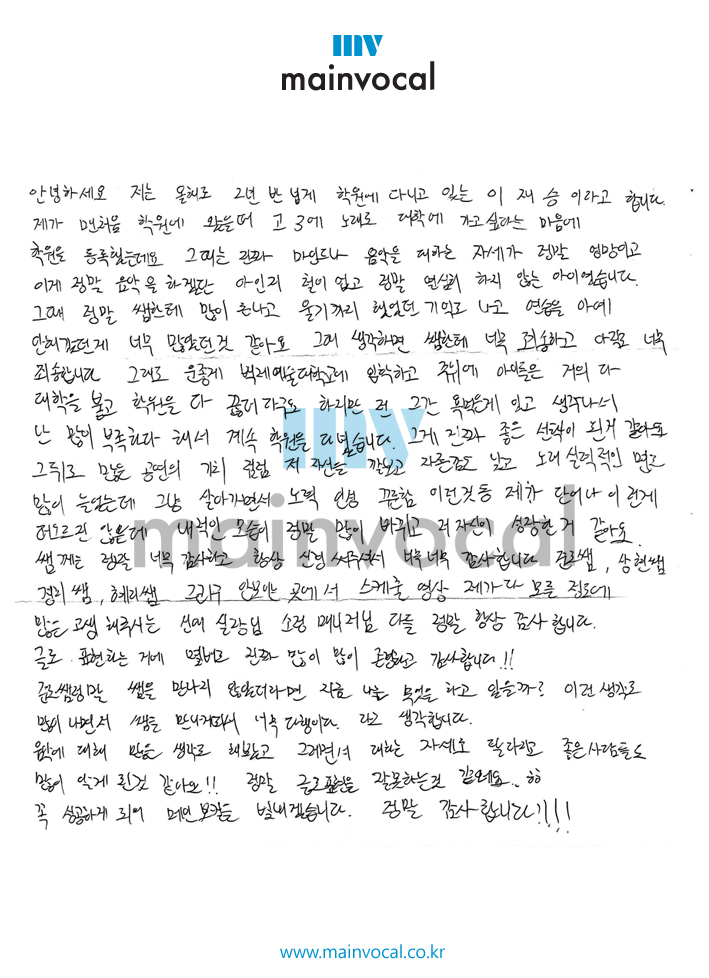 mv
mainvocal
안녕하세요 저는 올해로 2년 반 넘게 학원에 다니고 있는 이재승이라고 합니다.
제가 맨처음 학원에 왔을때 고3에 노래로 대학에 가고싶다는 마음에
학원을 등록했는데요 그때는 진짜 마인드나 음악을 대하는 자세가 정말 엉망이고
이게 정말 음악을 하겠단 아인지 철이없고 정말 열심히 하지 않는 아이였습니다.
그때 정말 쌤한테 많이 혼나고 울기까지 했었던 기억도 나고 연습을 아예
안해갔던게 너무 많았던것 같아요 그때 생각하면 쌤한테 너무 죄송하고 아직도 너무
죄송합니다 그래도 운좋게 백제예술대학교에 입학하고 주위에 아이들은 거의 다
대학을 붙고 학원을 다 끊더라구요 하지만 전 그간 욕먹은게 있고 생각나서
난 많이 부족하다 해서 계속 학원을 다녔습니다. 그게 진짜 좋은 선택이 된거 같아요
그뒤로 많은 공연의 기회 덕분 저 자신을 갖고 자존감도 낮고 노래실력적인 면도
많이 늘었는데 그냥 살아가면서 노력 인성 꾸준함 이런것등 제가 단어나 이런게
떠오르진 않은데 내적인 모습이 정말 많이 바뀌고 저 자신이 성장한거 같아요.
쌤께는 정말 너무 감사하고 항상 신경 써주셔서 너무너무 감사합니다 쌤, 상현쌤
경희쌤, 혜리쌤 그리구 안보이는 곳에서 스케줄 영상 제가 다 모를 정도에
많은 고생 해주시는 선예 실장님 소정 매니저님 다들 정말 항상 감사합니다.
글로 표현하는 거에 떨리고 진짜 많이 많이 존경하고 감사합니다!!
정말 쌤을 만나지 않았더라면 지금 나는 무엇을 하고 있을까? 이런생각도
많이 나면서 쌤을 만난거라서 너무 다행이다. 라고 생각합니다.
음악에 대해 많은 생각도 해봤고 그러면서 대하는 자세도 달라지고 좋은사람들도
많이 알게 된것 같아요!! 정말 글로표현을 잘못하는것 같네요.. ㅎㅎ
꼭 성공하게 되어 메인보컬을 빛내겠습니다. 정말 감사합니다!!!!
mv
mainvocal
www.mainvocal.co.kr